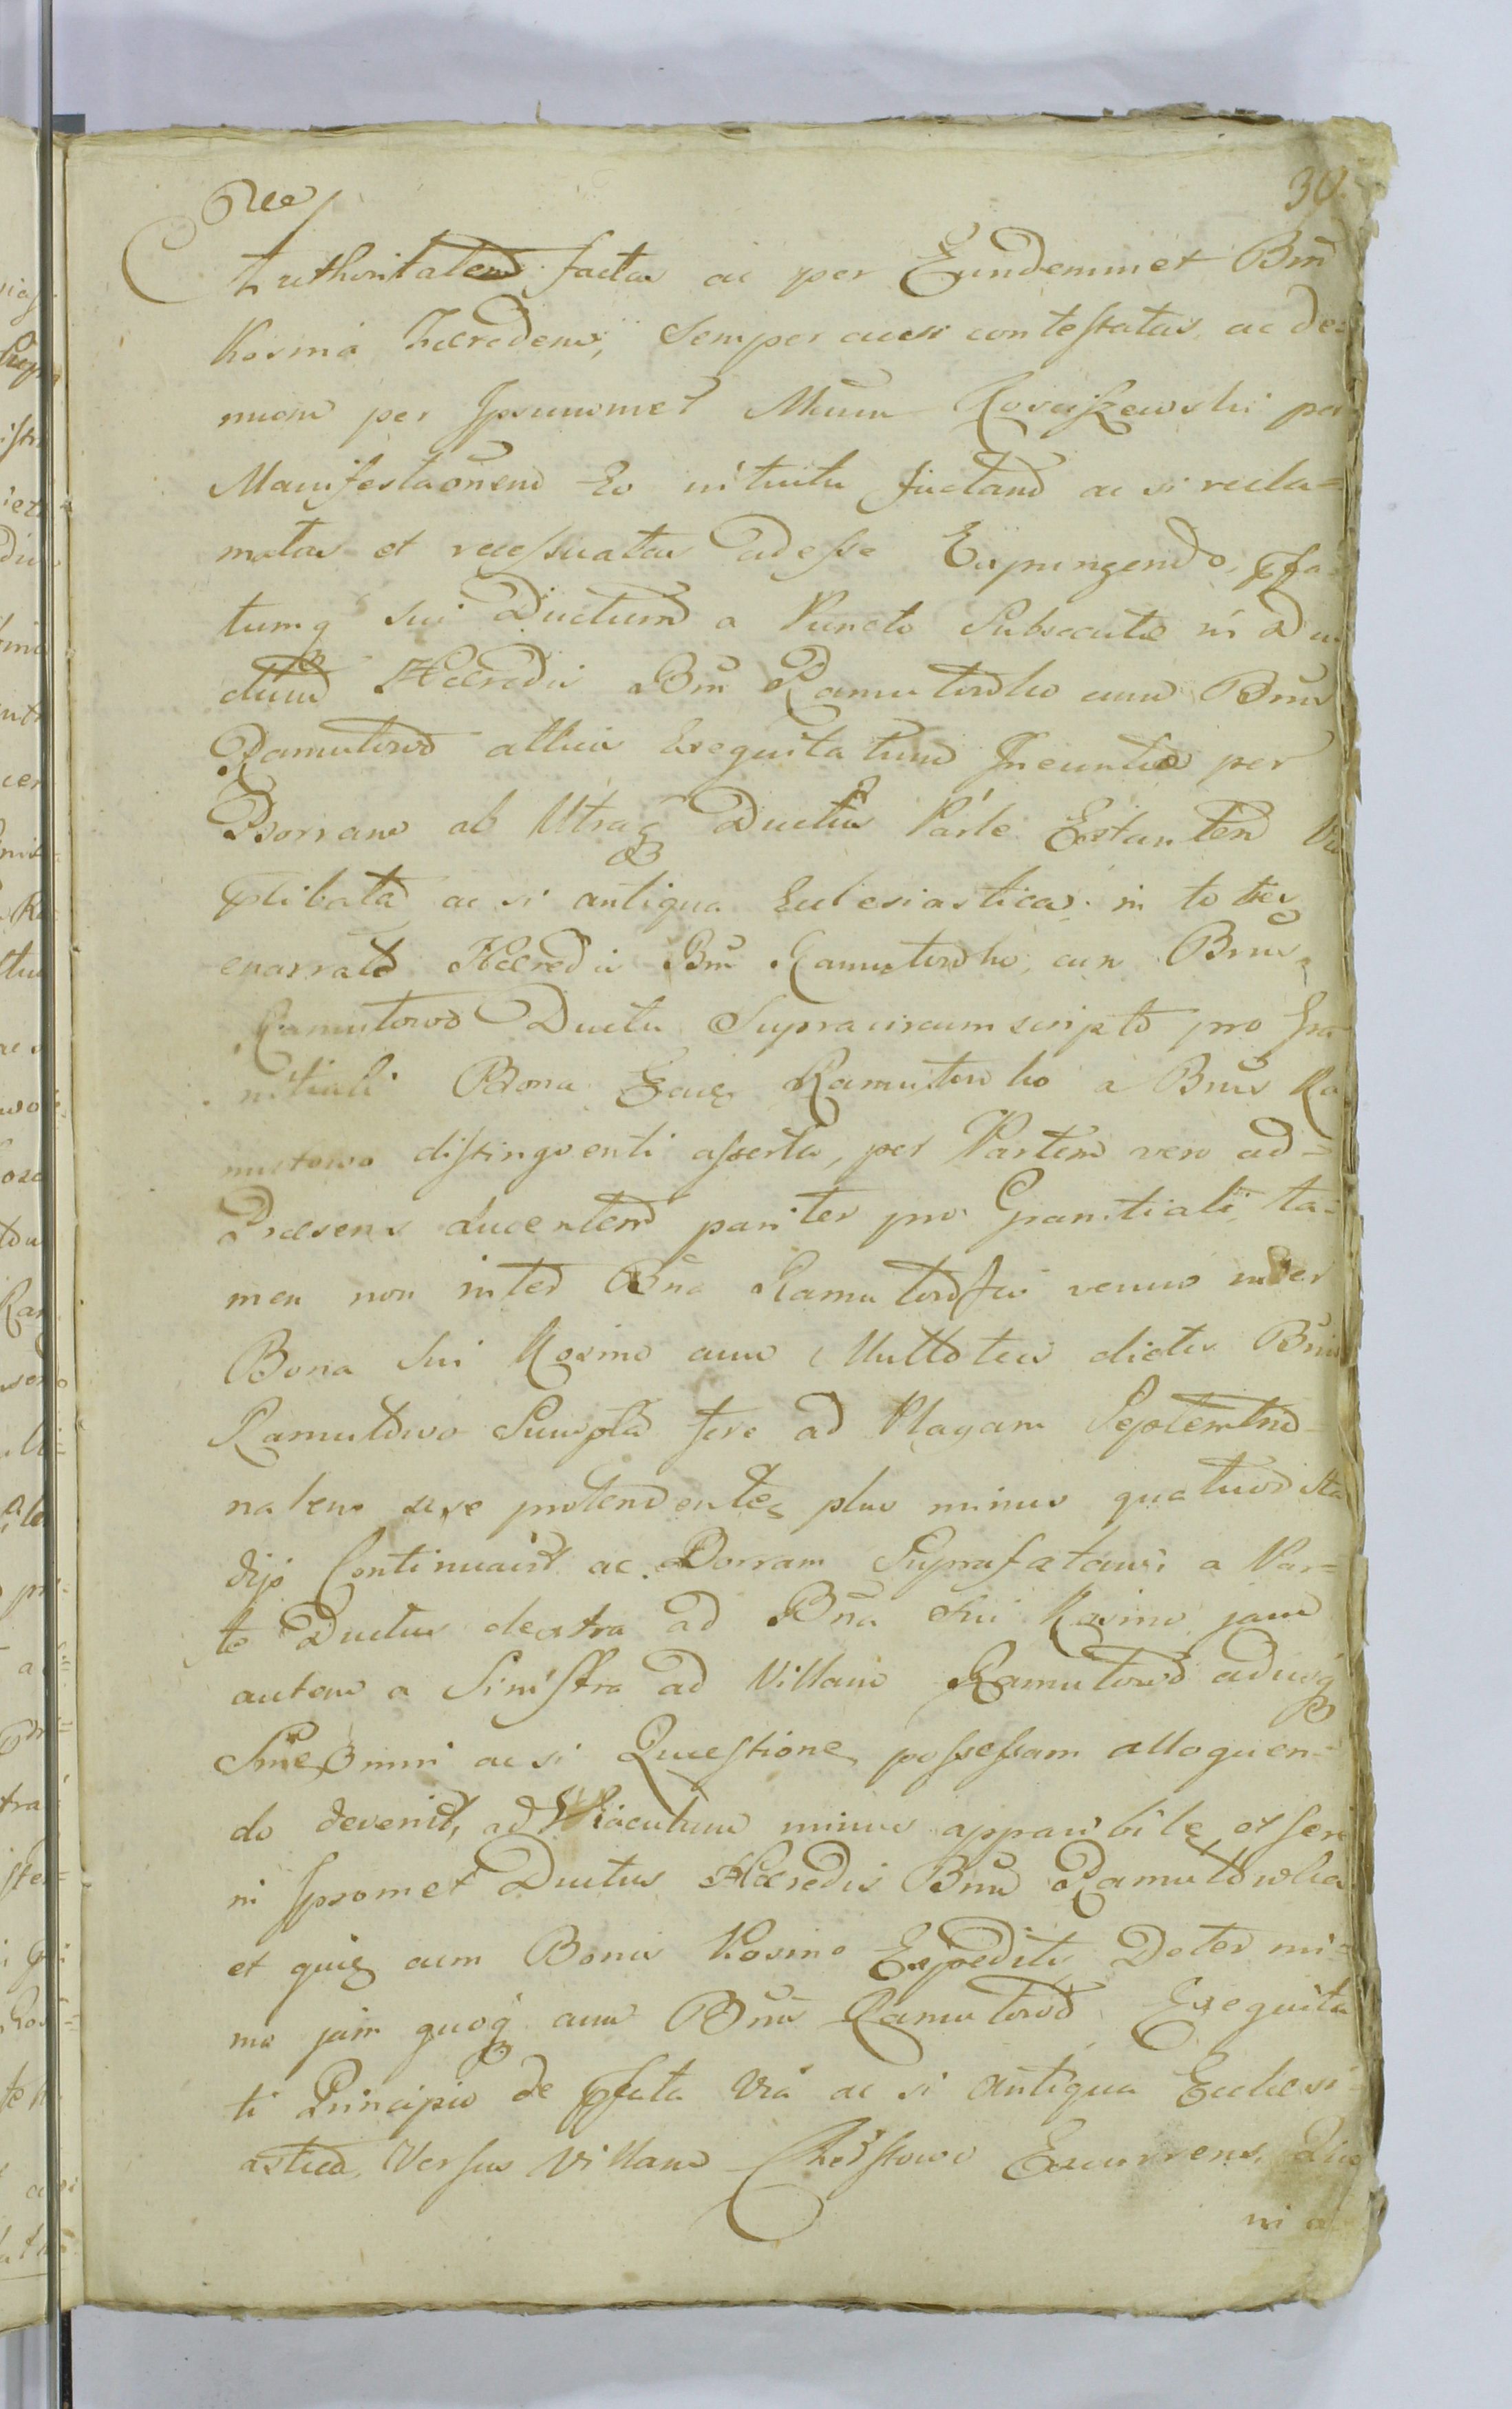 30
Authoritatem facta ac per Eundemmet Bm̄
Kosmo Hæredem, Semper acsi contestatas, ac de=
mum per Ipsummet Mm̄ per
Manifestaōnem Eo intuitu factand ac si recla=
matas et recessuatas adesse Expungendo, Pfa=
tumq sui Ductum a Puncto Subsecutæ in Du
ctum Hæredis Bm̄ Ramutowko cum Bnis
Ramutowo Exequitatum Ineuntis per
Borram ab Utraq Ductus Parte Extantem
Plibata ac si antiqua Ecclesiastica in toties
enarrato Hæredis Bm̄ Ramutowko, cum Bnis
Ramutowo Ductu Supracircumscripto pro Gra
nitiali Bona Ramutowko a Bnis Ra
mutowo distingventi asserta, per Partem vero ad=
Præsens ducentem pariter pro Granitiali ta=
men non inter Bn̄a Ramutowskie verum inter
Bona sui Kosmo cum Multoties dictis Bnis
Ramutowo Sumpta fere ad Plagam Septemtrio=
nalem sese protendentes plus minus quatuor sta
dijs Continuavit ac Borram Suprafatam a Par=
te Ductus dextra ad Bn̄a sui Kosmo jam
autem a Sinistra ad Villam Ramutowo aduusq
Sine Omni ac si Quæstione possessam alloquen=
do devenit, ad minus apparibile et fere
in Ipsomet Ductus Hæredis Bm̄ Ramutowko
et quiq cum Bonis Kosmo Expeditis Determi=
mo jam quoq cum Bnis Ramutowo Exequita
ti Principio de Pfata Via ac si Antiqua Ecclesi=
astica, Versus Villam Excurrens,
in